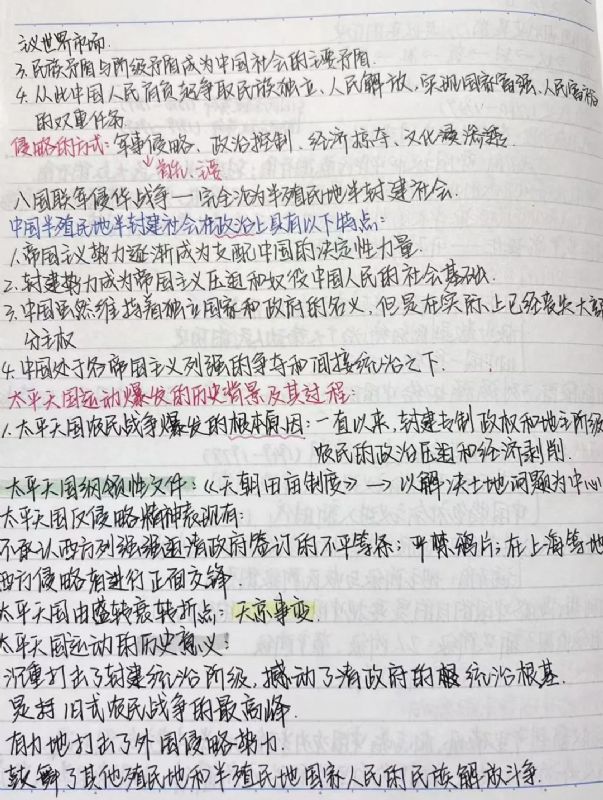 义世界市场.
3.民族矛盾与阶级矛盾成为中国社会的主要矛盾.
4.从此中国人民肩负起争取民族独立、人民解放,实现国家富强、人民富裕
的双重任务.
侵略的方式:军事侵略、政治控制、经济掠夺、文化渗透.
首位、主要
八国联军侵华战争——完全沦为半殖民地半封建社会.
中国半殖民地半封建社会在政治上具有以下特点:
1.帝国主义势力逐渐成为支配中国的决定性力量.
2.封建势力成为帝国主义压迫和奴役中国人民的社会基础.
3.中国虽然维持着独立国家和政府的名义,但是在实际上已经丧失大部
分主权
4.中国处于各帝国主义列强的争夺和间接统治之下.
太平天国运动爆发的历史背景及其过程
1.太平天国农民战争爆发的根本原因:一直以来,封建专制政权和地主阶级
农民的政治压迫和经济剥削.
太平天国纲领性文件:《天朝田亩制度》→以解决土地问题为中心
太平天国反侵略精神表现有:
不承认西方列强强迫清政府签订的不平等条;严禁鸦片;在上海等地
西方侵略者进行正面交锋
太平天国由盛转衰转折点:天京事变.
太平天国运动的历史意义:
沉重打击了封建统治阶级,撼动了清政府的统治根基.
是旧式农民战争的最高峰.
有力地打击了外国侵略势力.
鼓舞了其他殖民地和半殖民地国家人民的民族解放斗争.